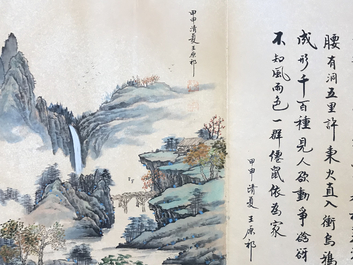 腰有洞五里許東火直入衝烏鴉
成形千百種見人欲動爭
不知風雨色一群僊鼠依為家
甲申清夏王原祁
甲申清夏王原祁